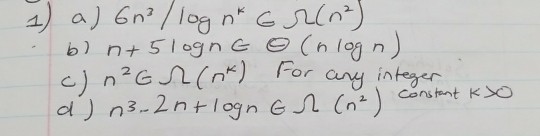 1) a) 6n³ / log nᵏ ∈ Ω(n²)
b) n + 5 log n ∈ Θ (n log n)
c) n² ∈ Ω (nᵏ) For any integer constant k>0
d) n³ - 2n + log n ∈ Ω (n²)